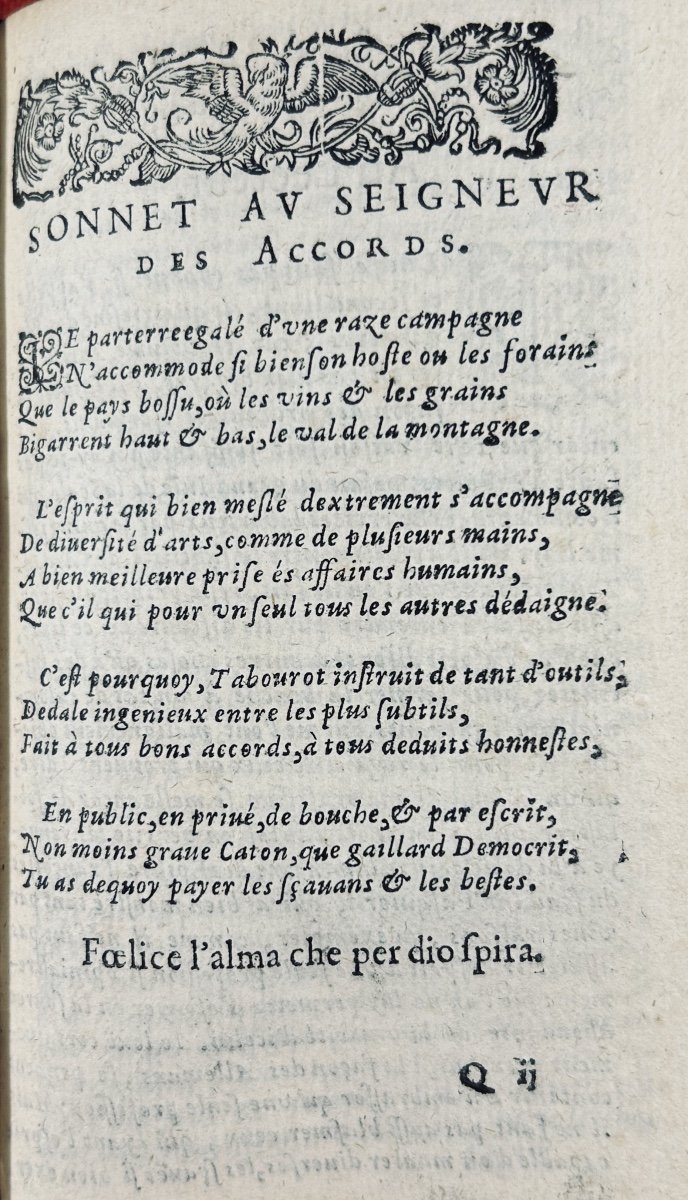 SONNET AV SEIGNEVR
DES ACCORDS.
LE parterre egalé d'vne raze campagne
N'accommode ſi bien ſon hoſte ou les forains
Que le pays boſſu, où les vins & les grains
Bigarrent haut & bas, le val de la montagne.
L'eſprit qui bien meſlé dextrement s'accompagne
De diuerſité d'arts, comme de pluſieurs mains,
A bien meilleure priſe és affaires humains,
Que c'il qui pour vn ſeul tous les autres dédaigne.
C'eſt pourquoy, Tabourot inſtruit de tant d'outils,
Dedale ingenieux entre les plus ſubtils,
Fait à tous bons accords, à tous deduits honneſtes,
En public, en priué, de bouche, & par eſcrit,
Non moins graue Caton, que gaillard Democrit,
Tu as dequoy payer les ſçauans & les beſtes.
Fœlice l'alma che per dio ſpira.
Q ij